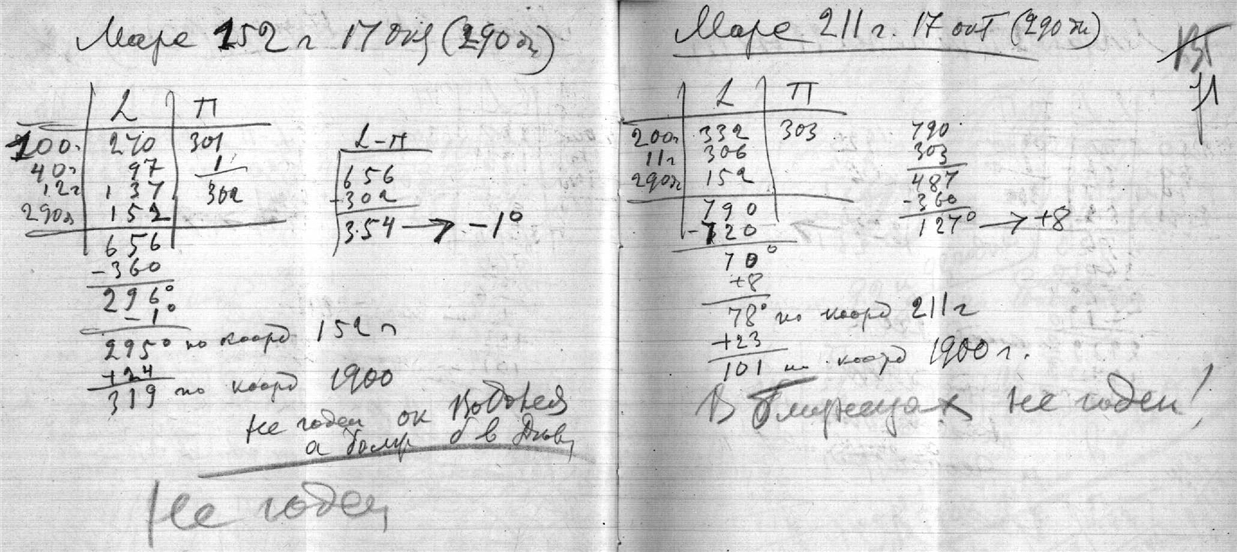 Марс 152 г 17 окт (290 дн)
L П
100г. 270 301
40г 97 1
12г 137 302
290дн 152
656
-360
296°
-1°
295° по коорд 152 г
+24
319 по коорд 1900
L-П
656
-302
354 → -1°
Не годен он Водолея
а был б в
Не годен
Марс 211 г. 17 окт (290 дн)
L П
200г 332 303
11г 306
290дн 152
790
-720
70°
+8
78° по коорд 211 г
+23
101 по коорд 1900 г.
790
303
487
-360
127° → +8
В Близнецах не годен!
71